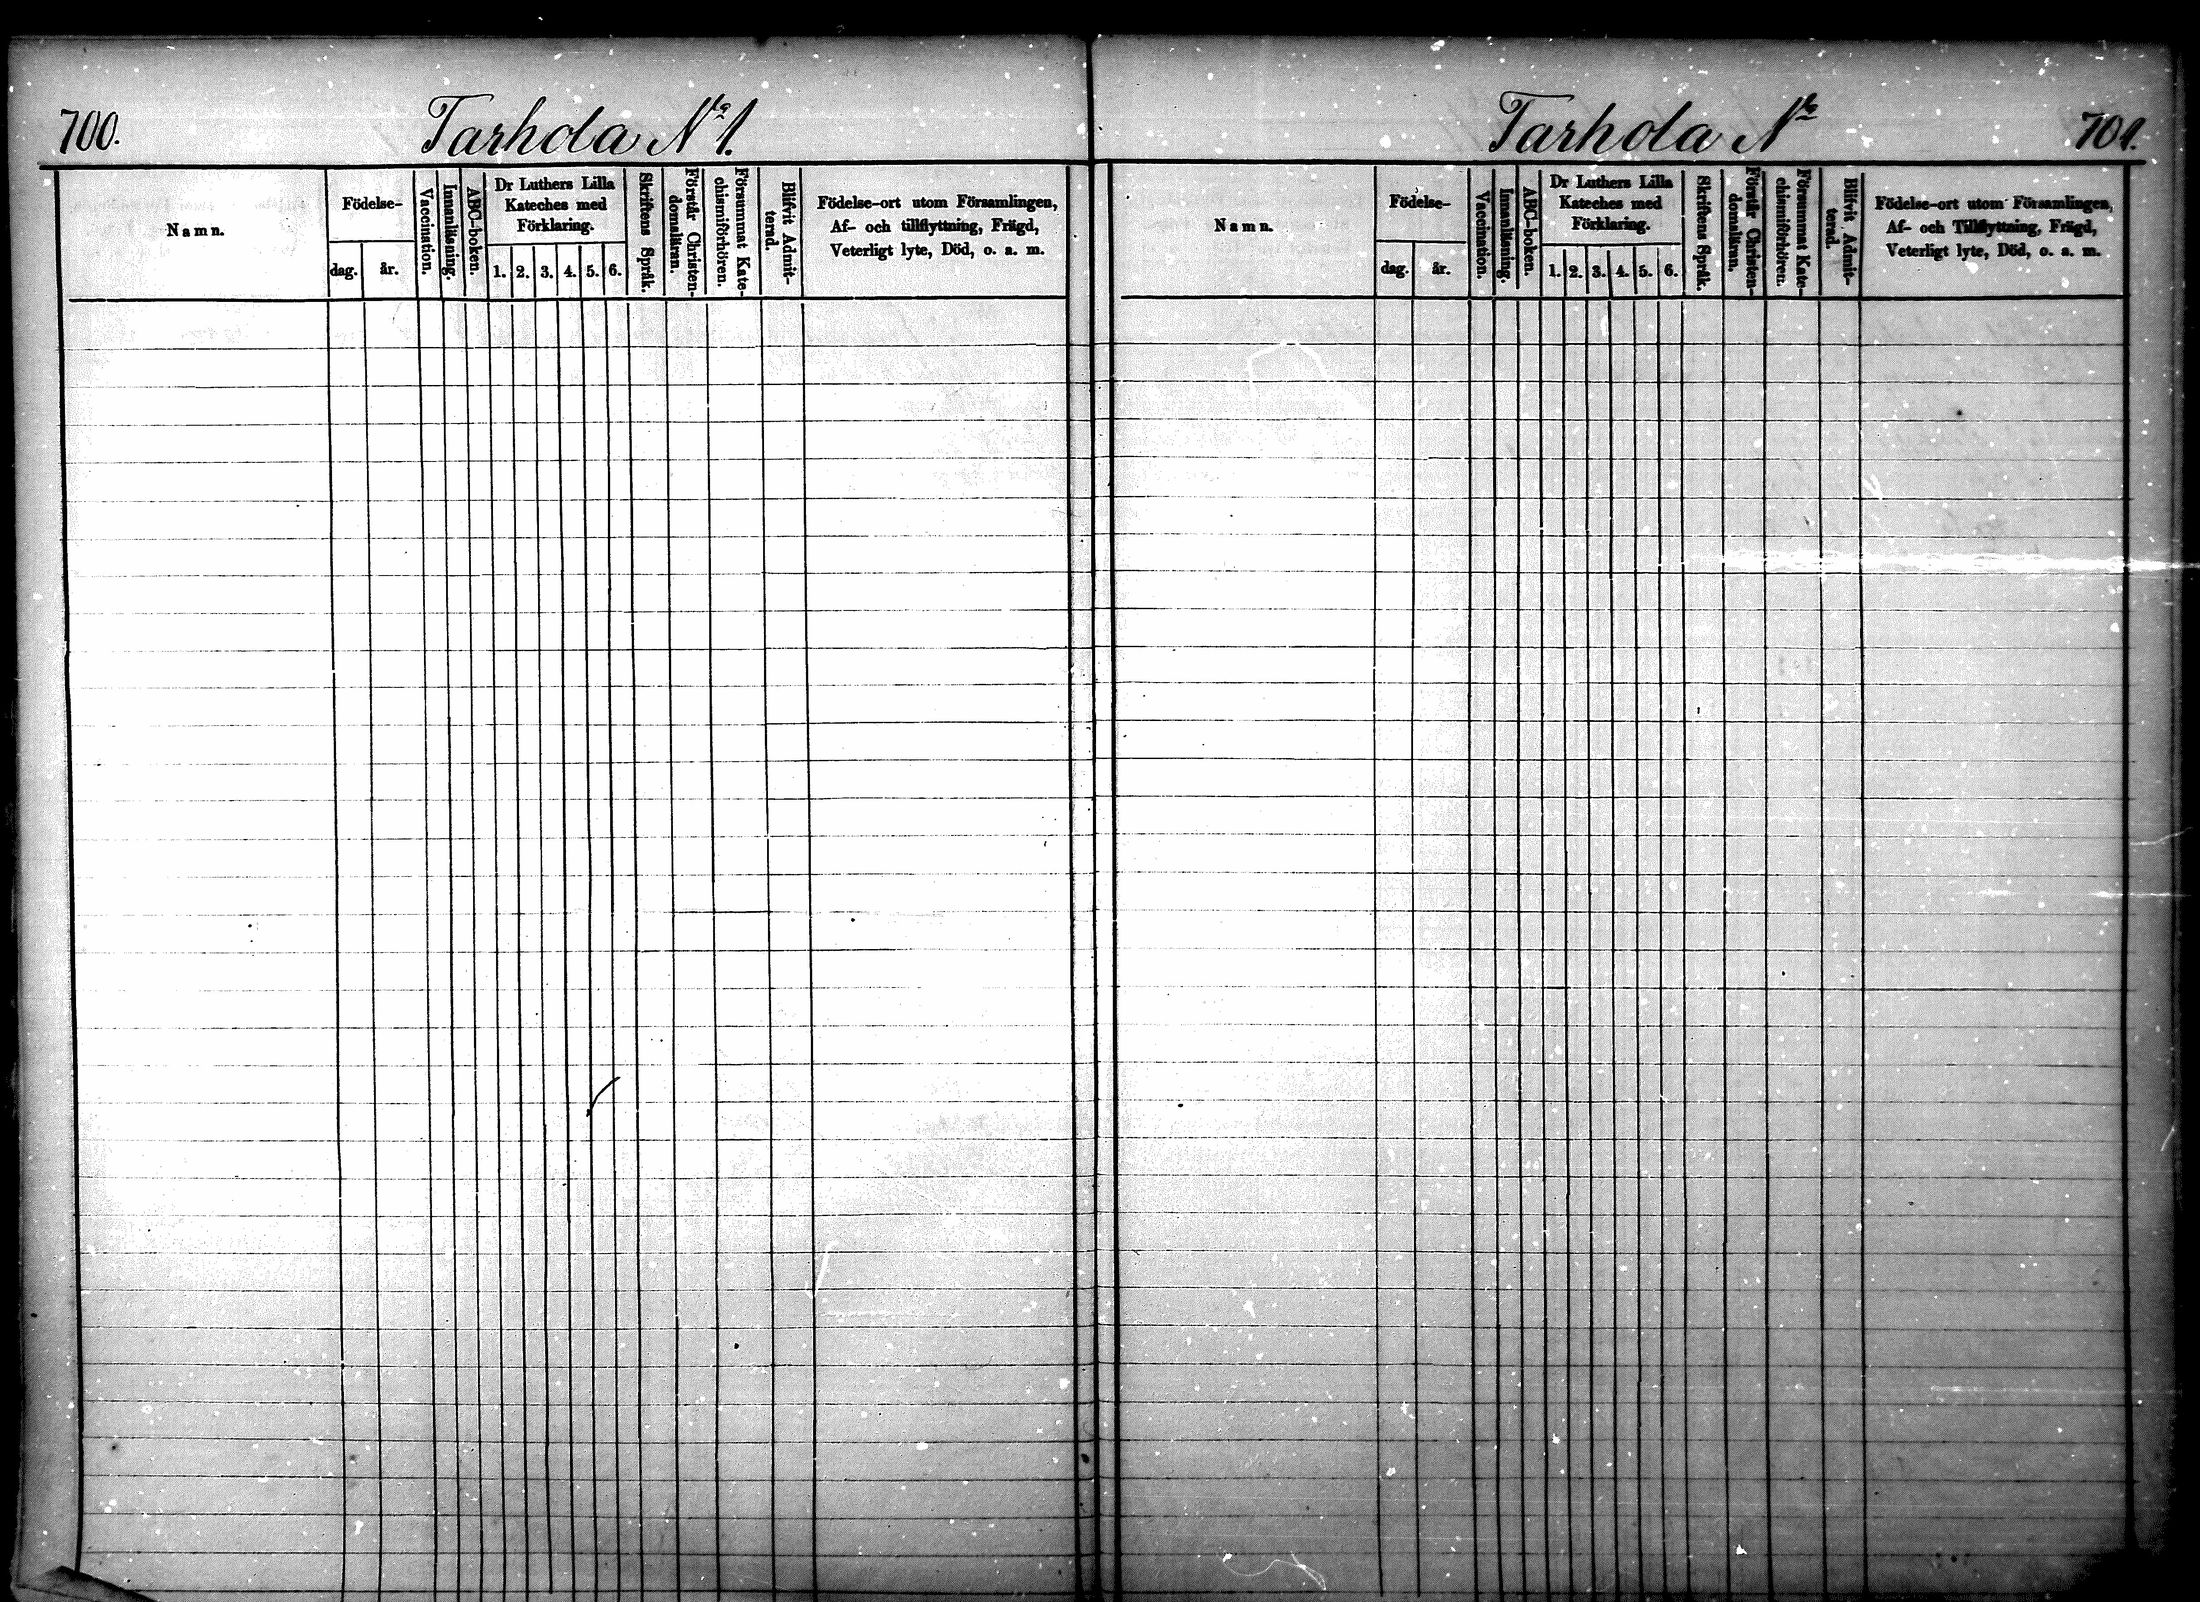 700.
Tarhola N<sup>la</sup> 1.
Namn.
Födelse-
dag.
år.
Vaccination.
Innanläsning.
ABC-boken.
Dr Luthers Lilla
Kateches med
Förklaring.
1. 2. 3. 4. 5. 6.
Skriftens Språk.
Förstår Christen-
domsläran.
Försummat Kate-
chismiförhören.
Blifvit Admit-
terad.
Födelse-ort utom Församlingen,
Af- och tillflyttning, Frägd,
Veterligt lyte, Död, o. a. m.
Tarhola N<sup>la</sup>
701.
Namn.
Födelse-
dag.
år.
Vaccination.
Innanläsning.
ABC-boken.
Dr Luthers Lilla
Kateches med
Förklaring.
1. 2. 3. 4. 5. 6.
Skriftens Språk.
Förstår Christen-
domsläran.
Försummat Kate-
chismiförhören.
Blifvit Admit-
terad.
Födelse-ort utom Församlingen,
Af- och Tillflyttning, Frägd,
Veterligt lyte, Död, o. a. m.